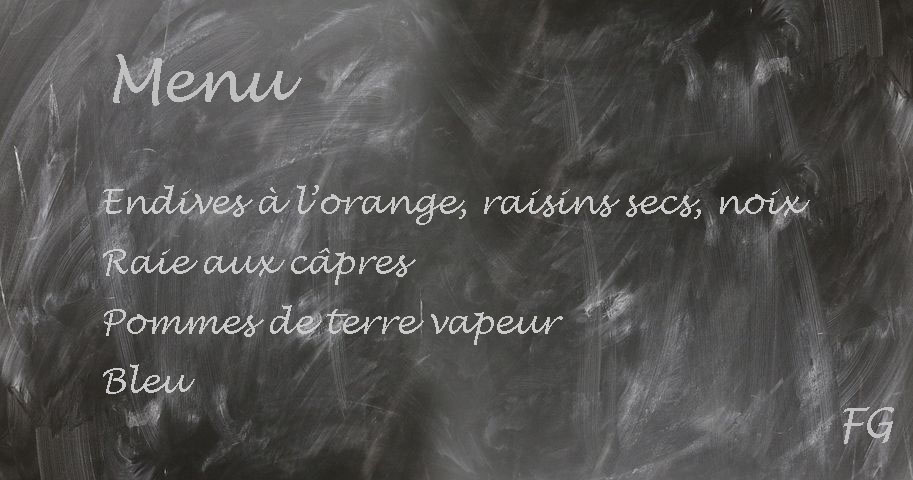 Menu
Endives à l'orange, raisins secs, noix
Raie aux câpres
Pommes de terre vapeur
Bleu
FG